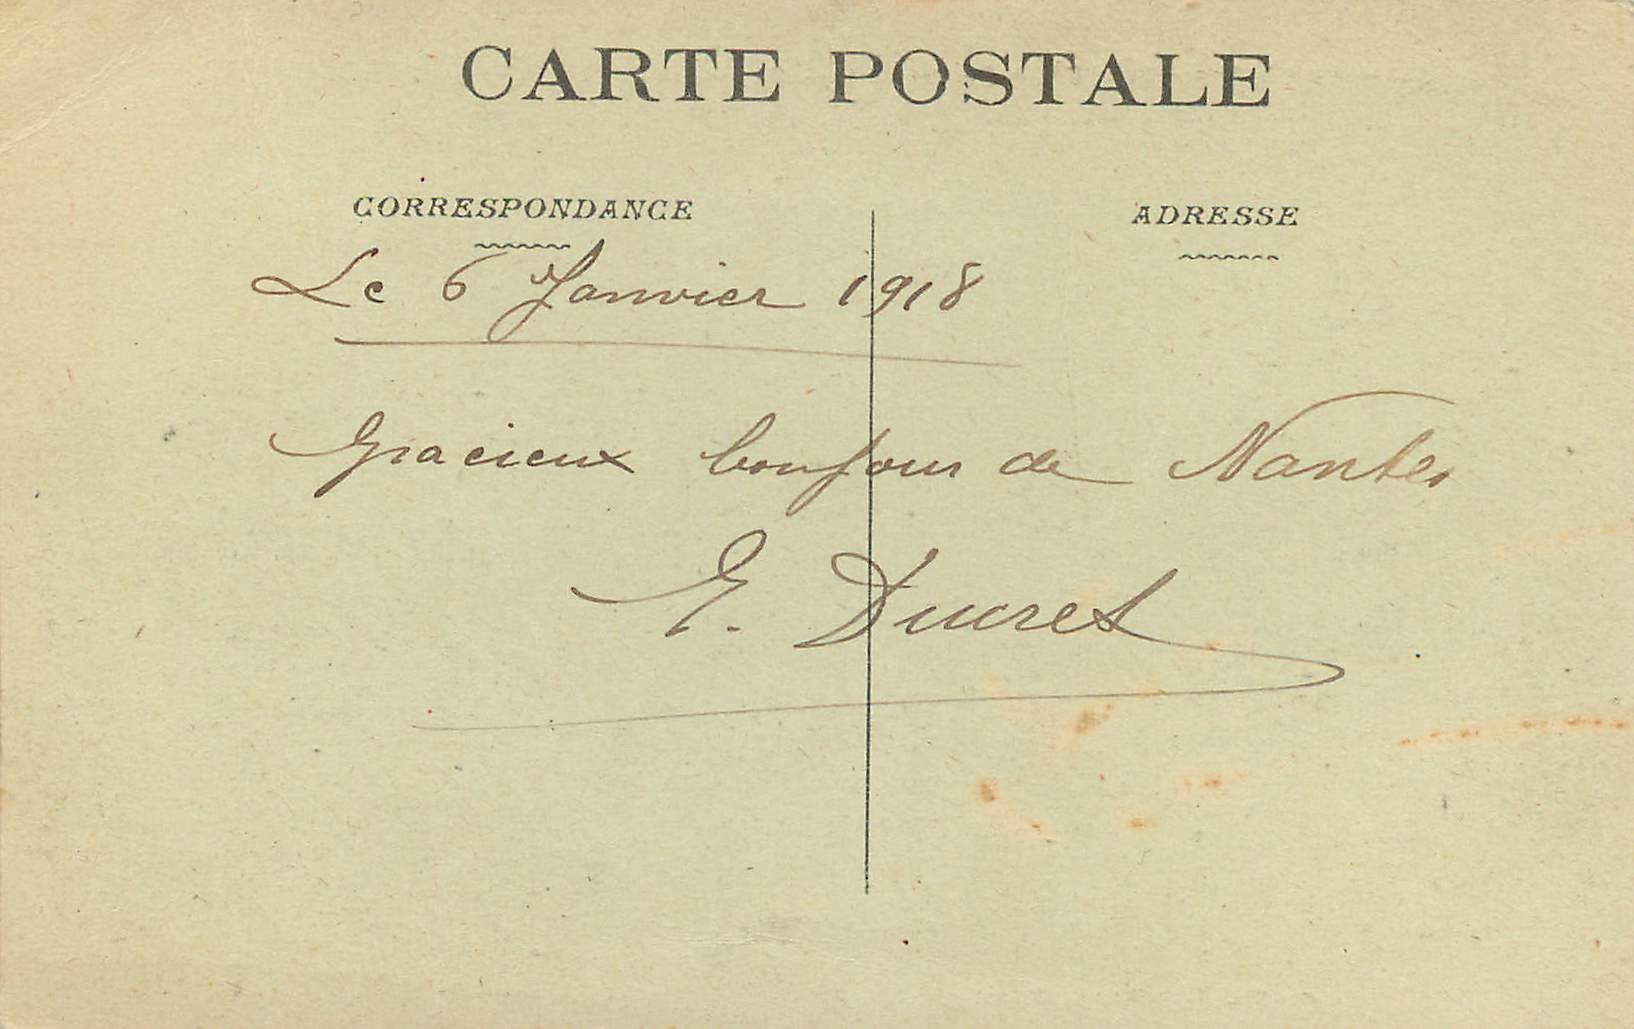 CARTE POSTALE
CORRESPONDANCE
ADRESSE
Le 6 Janvier 1918
Gracieux bonjour de Nantes
E. Ducret